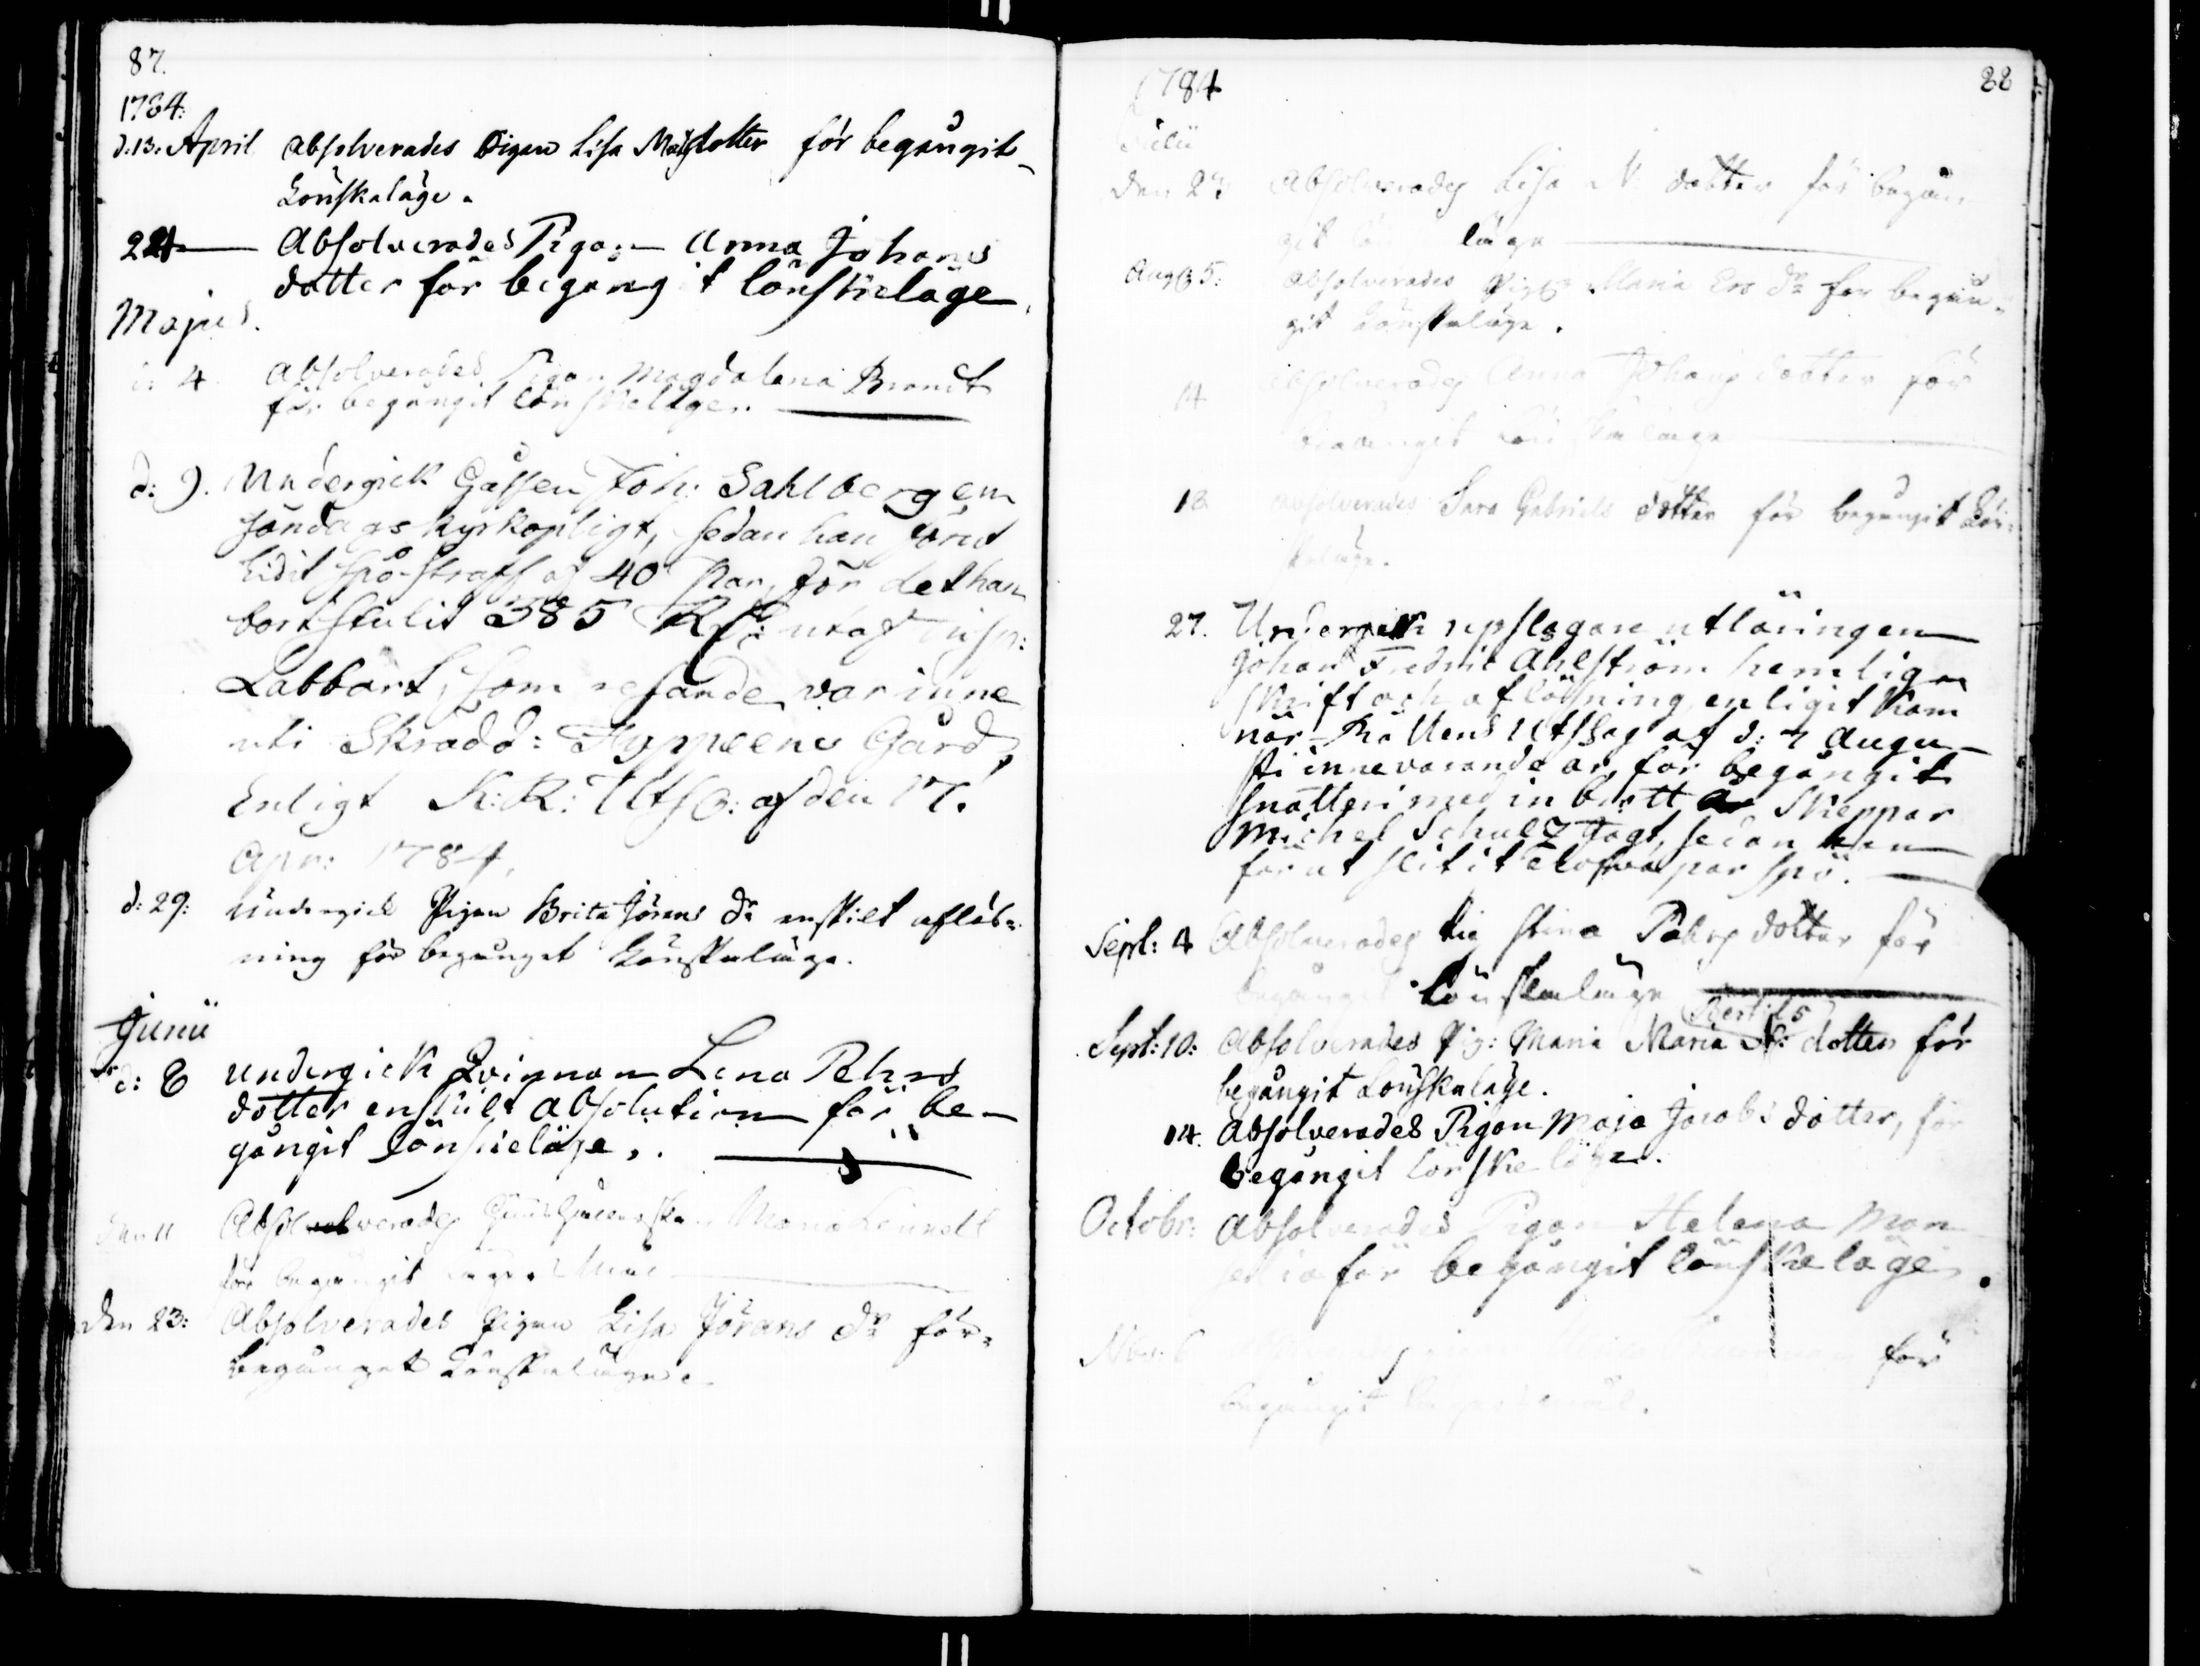 87.
1784:
d. 13. April absolverades Pigan Lisa Matsdotter för begångit
Lönskaläge.
24 Absolverades Pigan Anna Johans
dotter för begångit lönskeläge.
Majus.
d: 4 Absolverades Pigan Magdalena Brandt
för begångit lönskeläge.
d: 9. Undergick Gåssen Joh: Sahlberg en
söndags kyrkopligt, sedan han förut
lidit spö-straff af 40 Par, för det han
bortstulit 385 Rd: utaf Insp:
Labbart, som resande var inne
uti Skrädd: Hyppeens Gård,
Enligt K: R: Utsl: af den 17.
Apr: 1784.
d: 29: undergick Pigan Brita Jörans dr enskilt aflös-
ning för begånget Lönskaläge.
Junii
d: 8 undergick Qvinnan Lena Pehrs
dotter enskilt absolution för be-
gångit lönskeläge.
den 11 Absolverades Mana
för begångit
den 23: Absolverades Pigan Lisa Jörans dr för
begånget Lönskaläge.
1784 88
Julii
den 27 Absolverades Lisa N: dotter för begån
git läge
Aug 5: absolverades Pig: Maria Ers dr för begån-
git Lönskaläge.
14 absolverades Anna Johans dotter för
begångit Lönskaläge
18 absolverades Sara Gabriels dotter för begångit Lön-
skaläge.
27. Undergick repslagare utläringen
Johan Fredric Ahlström hemlig
skrift och aflösning enligit Käm
närs Rättens Utslag af d: 7 Augu-
sti innevarande år, för begångit
snatteri med in brått å Skeppar
Michel Schultz Jagt, sedan han
förut slitit elofva par spö.
Sept: 4 Absolverades Pig Stina Pahrs dotter för
begånget Lönskaläge
Bertils
Sept: 10: Absolverades Pig: Maria Maria N: dotter för
begångit Lönskaläge.
14. Absolverades Pigan Maja Jacobs dotter, för
begångit lönskeläge.
Octobr: Absolverades Pigan Helena Man
för begångit lönskeläge.
Nov. 6 för
begångit